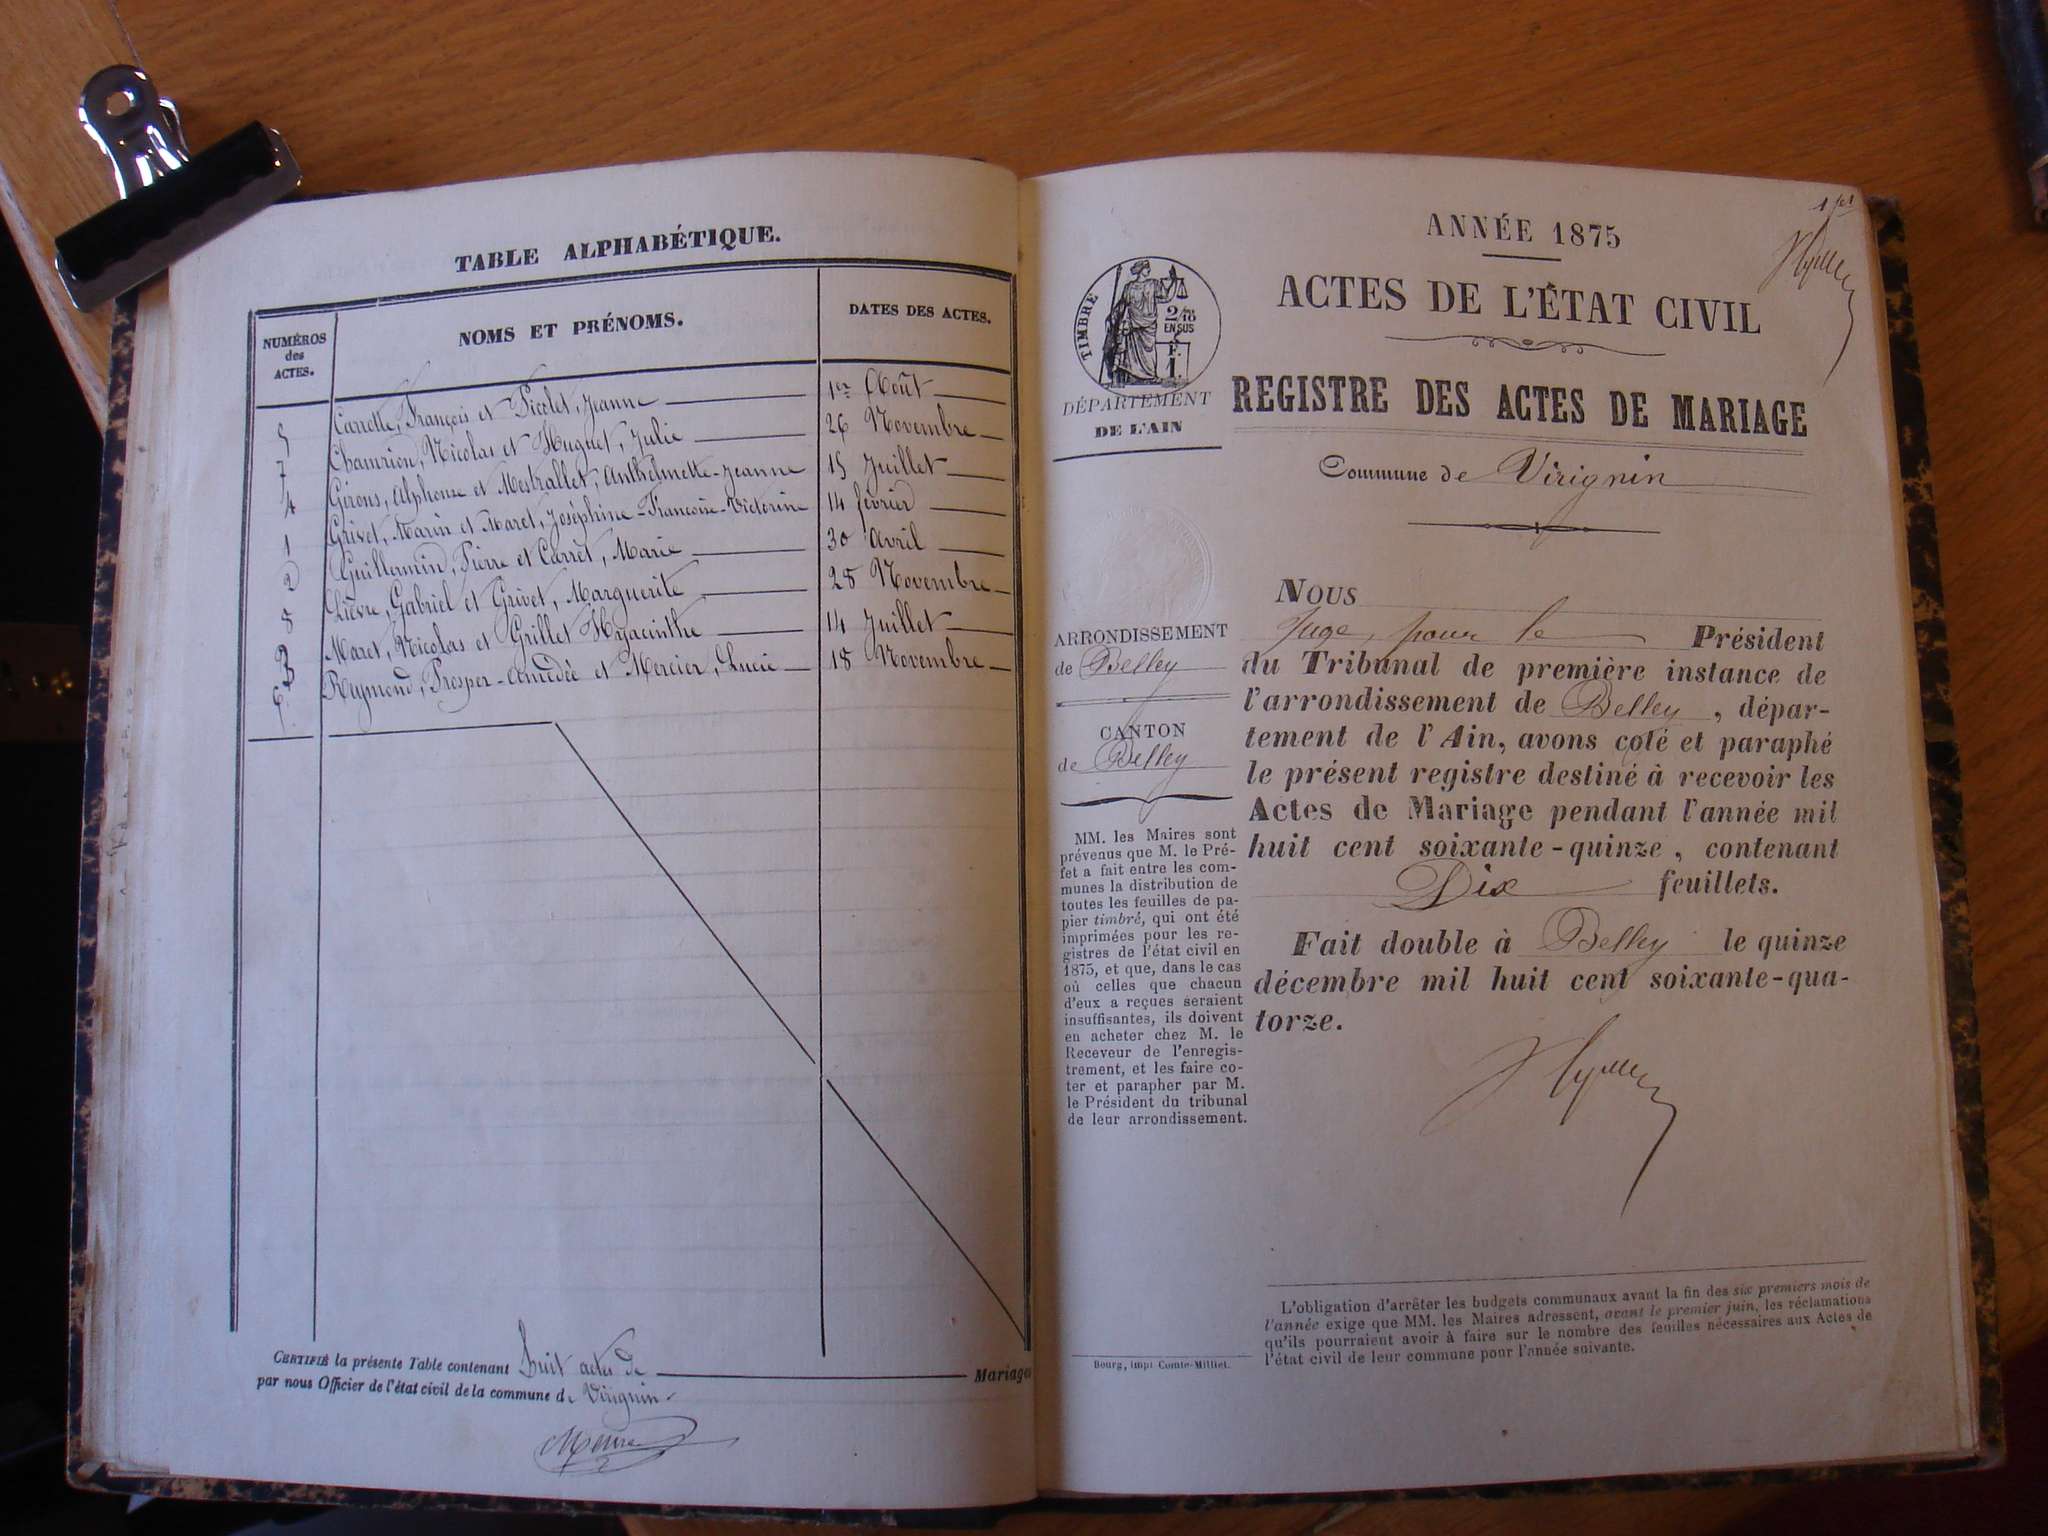 TABLE ALPHABÉTIQUE.
NUMÉROS des ACTES.
NOMS ET PRÉNOMS.
DATES DES ACTES.
5 Carrette, François et Picolet, Jeanne 1er Août
7 Chamrion, Nicolas et Huguet, Julie 26 Novembre
4 Girons, Alphonse et Mestrallet, Anthelmette-Jeanne 15 Juillet
1 Grivet, Marin et Maret, Joséphine-Françoise-Victorine 14 février
2 Guillermin, Pierre et Carret, Marie 30 Avril
8 Lièvre, Gabriel et Grivet, Marguerite 28 Novembre
3 Maret, Nicolas et Grillet Hyacinthe 14 Juillet
6 Raymond, Prosper-Amedée et Mercier, Lucie 18 Novembre
CERTIFIÉ la présente Table contenant huit actes de Mariage
par nous Officier de l'état civil de la commune de Virignin
1er
ANNÉE 1875
ACTES DE L'ÉTAT CIVIL
REGISTRE DES ACTES DE MARIAGE
Commune de Virignin
TIMBRE
2/10
EN SUS
F.
1.
DÉPARTEMENT
DE L'AIN
ARRONDISSEMENT
de Belley
CANTON
de Belley
MM. les Maires sont
prévenus que M. le Pré-
fet a fait entre les com-
munes la distribution de
toutes les feuilles de pa-
pier timbré, qui ont été
imprimées pour les re-
gistres de l'état civil en
1875, et que, dans le cas
où celles que chacun
d'eux a reçues seraient
insuffisantes, ils doivent
en acheter chez M. le
Receveur de l'enregis-
trement, et les faire co-
ter et parapher par M.
le Président du tribunal
de leur arrondissement.
Bourg, imp. Comte-Milliet.
NOUS
Juge, pour le Président
du Tribunal de première instance de
l'arrondissement de Belley, dépar-
tement de l'Ain, avons coté et paraphé
le présent registre destiné à recevoir les
Actes de Mariage pendant l'année mil
huit cent soixante-quinze, contenant
Dix feuillets.
Fait double à Belley le quinze
décembre mil huit cent soixante-qua-
torze.
L'obligation d'arrêter les budgets communaux avant la fin des six premiers mois de
l'année exige que MM. les Maires adressent, avant le premier juin, les réclamations
qu'ils pourraient avoir à faire sur le nombre des feuilles nécessaires aux Actes de
l'état civil de leur commune pour l'année suivante.